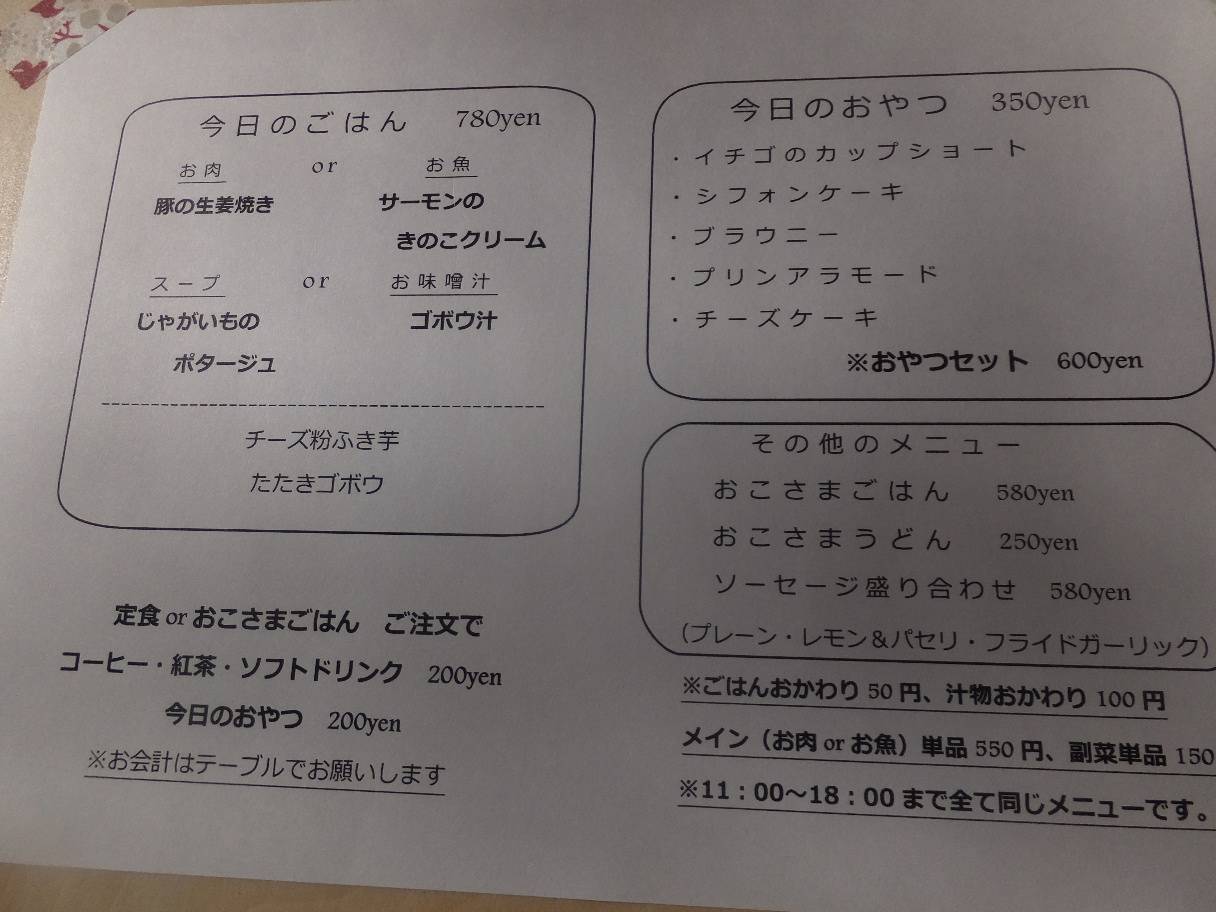 今日のごはん 780yen
お肉 or お魚
豚の生姜焼き サーモンの
きのこクリーム
スープ or お味噌汁
じゃがいもの ゴボウ汁
ポタージュ
チーズ粉ふき芋
たたきゴボウ
定食 or おこさまごはん ご注文で
コーヒー・紅茶・ソフトドリンク 200yen
今日のおやつ 200yen
※お会計はテーブルでお願いします
今日のおやつ 350yen
・イチゴのカップショート
・シフォンケーキ
・ブラウニー
・プリンアラモード
・チーズケーキ
※おやつセット 600yen
その他のメニュー
おこさまごはん 580yen
おこさまうどん 250yen
ソーセージ盛り合わせ 580yen
（プレーン・レモン＆パセリ・フライドガーリック）
※ごはんおかわり 50 円、汁物おかわり 100 円
メイン（お肉 or お魚）単品 550 円、副菜単品 150
※11：00～18：00 まで全て同じメニューです。